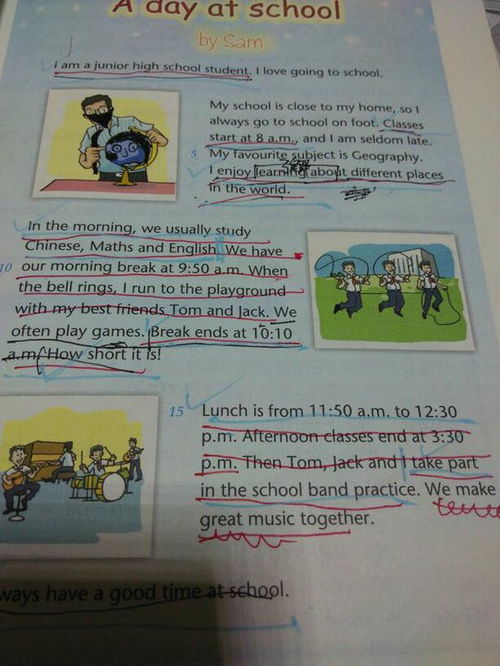 A day at school
by Sam
I am a junior high school student. I love going to school.
My school is close to my home, so I
always go to school on foot. Classes
start at 8 a.m., and I am seldom late.
5 My favourite subject is Geography.
I enjoy learning about different places
in the world.
In the morning, we usually study
Chinese, Maths and English. We have
10 our morning break at 9:50 a.m. When
the bell rings, I run to the playground
with my best friends Tom and Jack. We
often play games. Break ends at 10:10
a.m. How short it is!
15 Lunch is from 11:50 a.m. to 12:30
p.m. Afternoon classes end at 3:30
p.m. Then Tom, Jack and I take part
in the school band practice. We make
great music together.
ways have a good time at school.